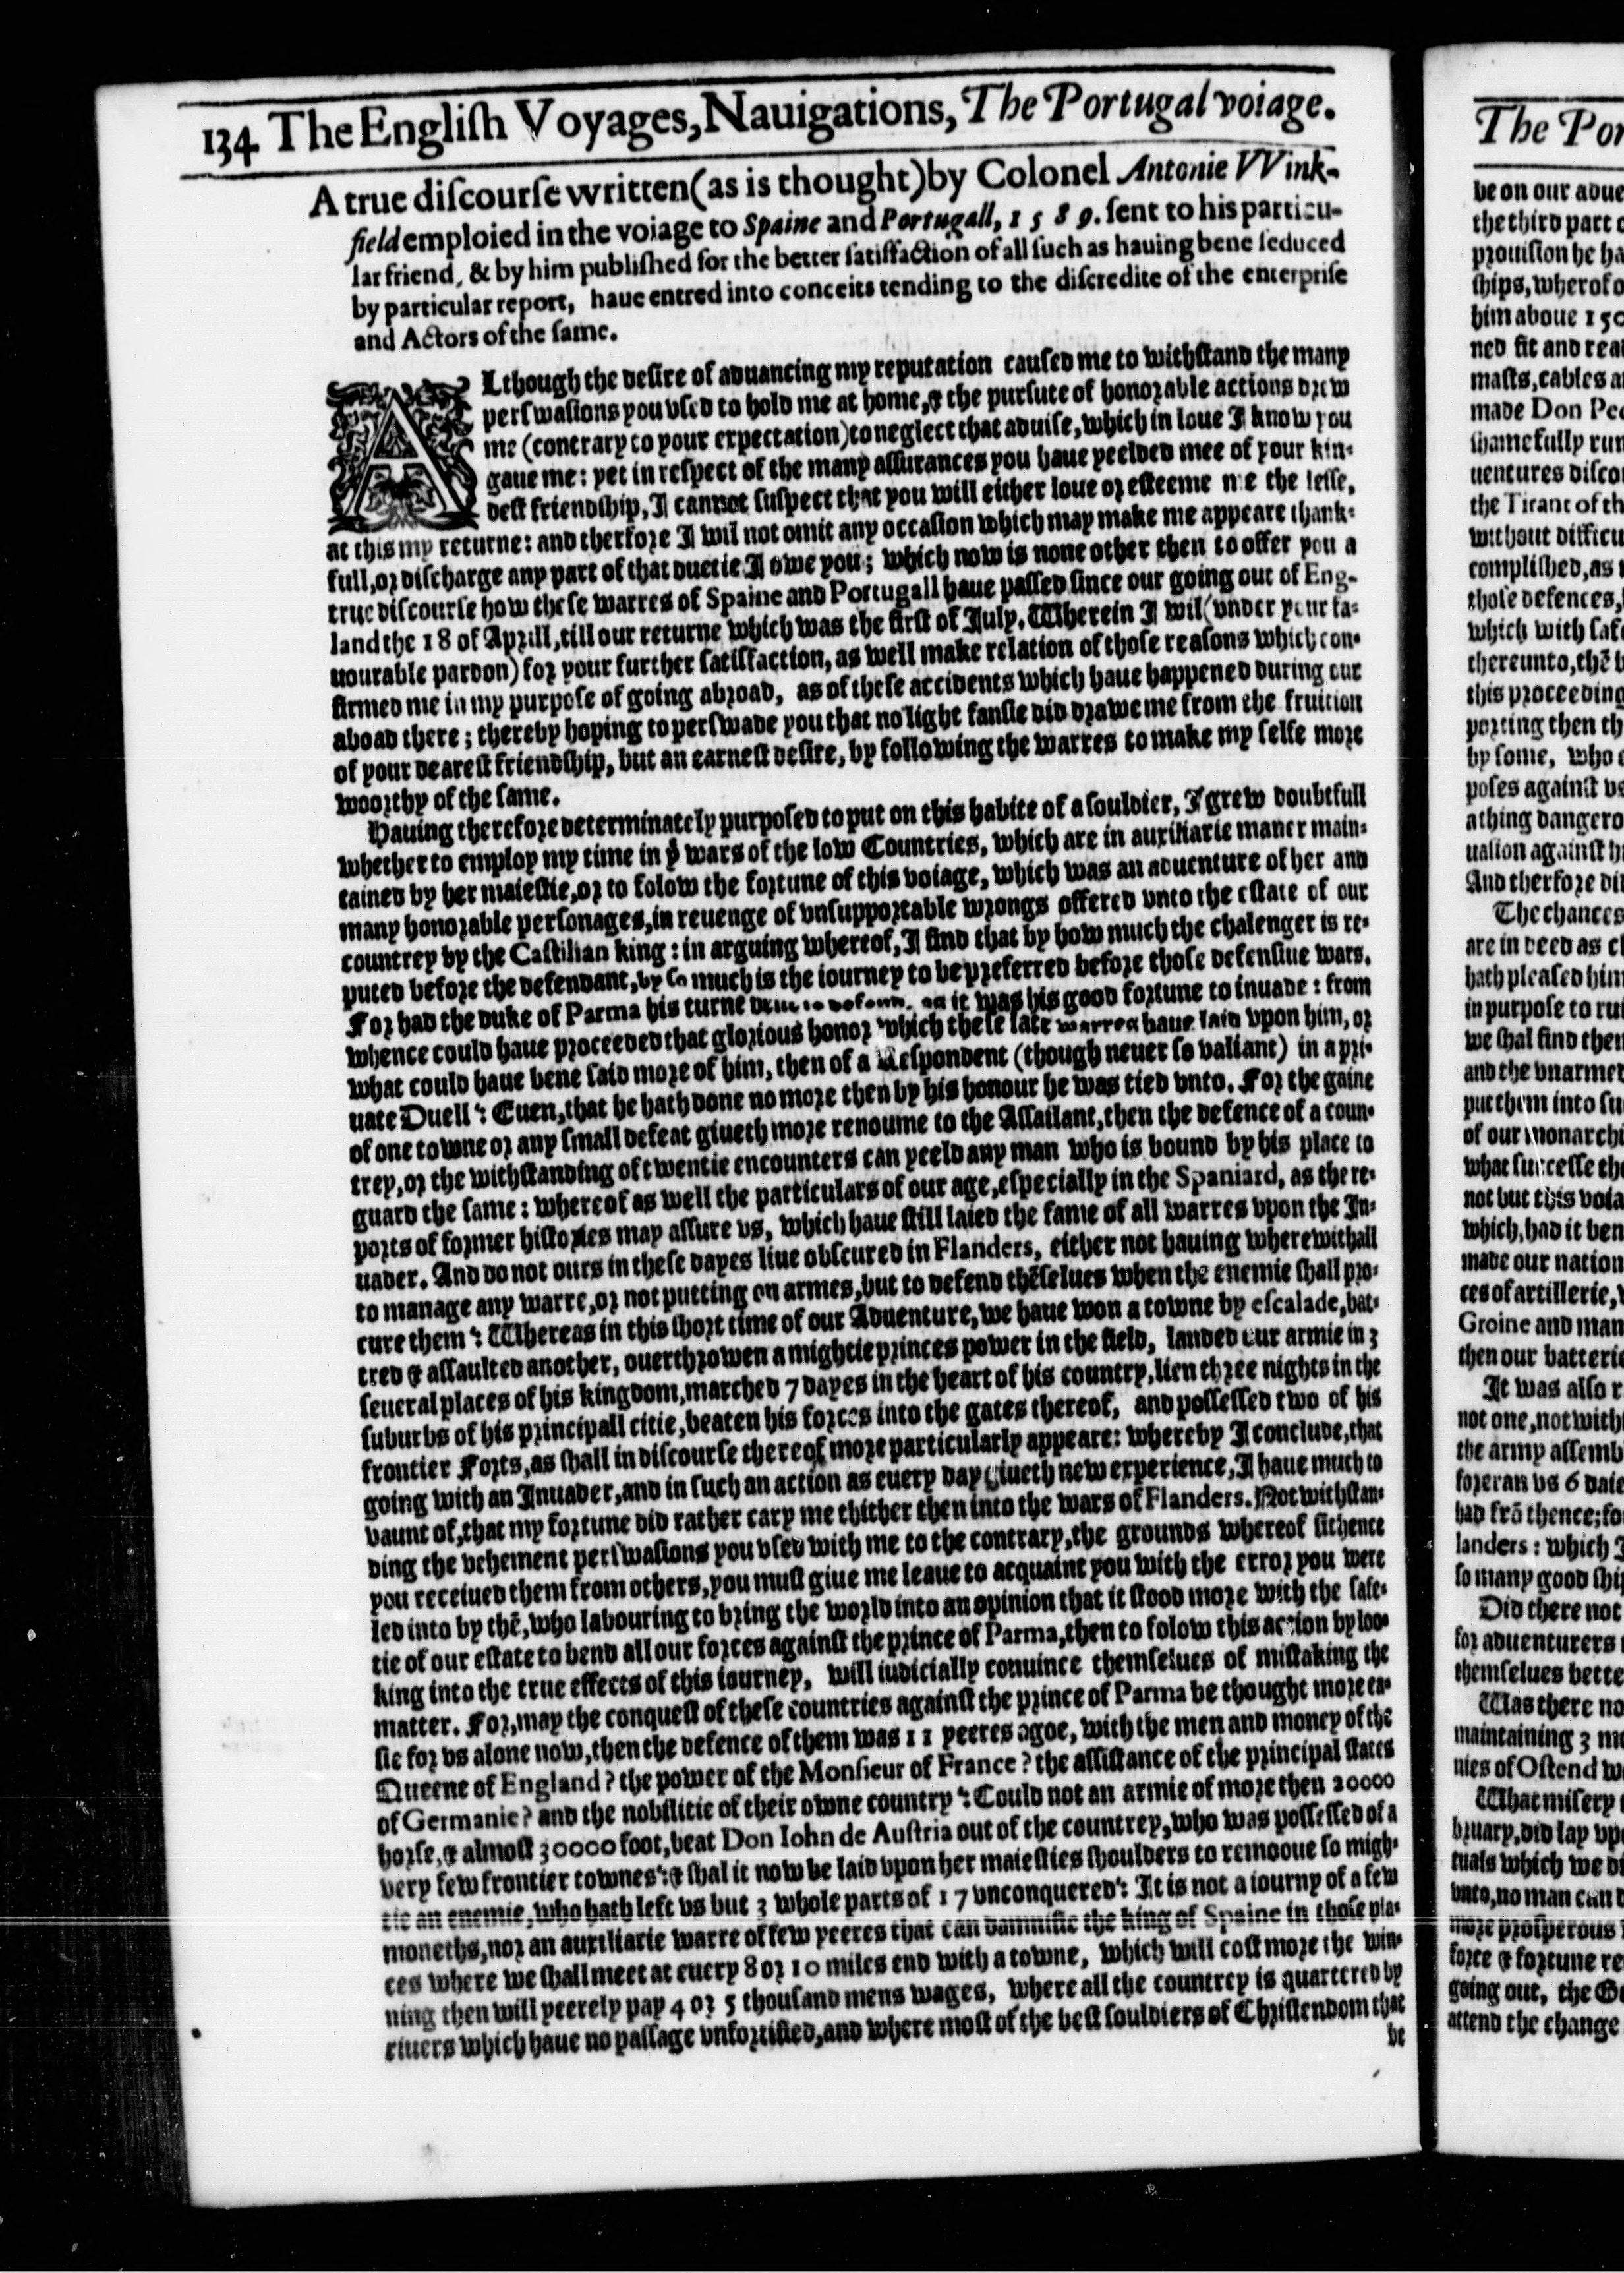 134 The Engliſh Voyages, Nauigations, The Portugal voiage.
A true diſcourſe written (as is thought) by Colonel Antonie VVink-
field emploied in the voiage to Spaine and Portugall, 1589. ſent to his particu-
lar friend, & by him publiſhed for the better ſatiſfaction of all ſuch as hauing bene ſeduced
by particular report, haue entred into conceits tending to the diſcredite of the enterpriſe
and Actors of the ſame.
ALthough the deſire of aduancing my reputation cauſed me to withſtand the many
perſwaſions you vſed to hold me at home, & the purſute of honorable actions drew
me (contrary to your expectation) to neglect that aduiſe, which in loue I know you
gaue me: yet in reſpect of the many aſſurances you haue yeelded mee of your kin-
deſt friendſhip, I cannot ſuſpect that you will either loue or eſteeme me the leſſe,
at this my returne: and therfore I wil not omit any occaſion which may make me appeare thank-
full, or diſcharge any part of that duetie I owe you; which now is none other then to offer you a
true diſcourſe how theſe warres of Spaine and Portugall haue paſſed ſince our going out of Eng-
land the 18 of Aprill, till our returne which was the firſt of July. Wherein I wil (vnder your fa-
uourable pardon) for your further ſatiſfaction, as well make relation of thoſe reaſons which con-
firmed me in my purpoſe of going abroad, as of theſe accidents which haue happened during our
aboad there; thereby hoping to perſwade you that no light fanſie did drawe me from the fruition
of your deareſt friendſhip, but an earneſt deſire, by following the warres to make my ſelfe more
woorthy of the ſame.
Hauing therefore determinately purpoſed to put on this habite of a ſouldier, I grew doubtfull
whether to employ my time in yͤ wars of the low Countries, which are in auxiliarie maner main-
tained by her maieſtie, or to folow the fortune of this voiage, which was an aduenture of her and
many honorable perſonages, in reuenge of vnſupportable wrongs offered vnto the eſtate of our
countrey by the Caſtilian king: in arguing whereof, I find that by how much the chalenger is re-
puted before the defendant, by ſo much is the iourney to be preferred before thoſe defenſiue wars.
For had the duke of Parma his turne bene to defend, as it was his good fortune to inuade: from
whence could haue proceeded that glorious honor which theſe late warres haue laid vpon him, or
what could haue bene ſaid more of him, then of a Reſpondent (though neuer ſo valiant) in a pri-
uate Duell: Euen, that he hath done no more then by his honour he was tied vnto. For the gaine
of one towne or any ſmall defeat giueth more renoume to the Aſſailant, then the defence of a coun-
trey, or the withſtanding of twentie encounters can yeeld any man who is bound by his place to
guard the ſame: whereof as well the particulars of our age, eſpecially in the Spaniard, as the re-
ports of former hiſtories may aſſure vs, which haue ſtill laied the fame of all warres vpon the In-
uader. And do not ours in theſe dayes liue obſcured in Flanders, either not hauing wherewithall
to manage any warre, or not putting on armes, but to defend thēſelues when the enemie ſhall pro-
cure them? Whereas in this ſhort time of our Aduenture, we haue won a towne by eſcalade, bat-
tred & aſſaulted another, ouerthrowen a mightie princes power in the field, landed our armie in 3
ſeueral places of his kingdom, marched 7 dayes in the heart of his country, lien three nights in the
ſuburbs of his principall citie, beaten his forces into the gates thereof, and poſſeſſed two of his
frontier Forts, as ſhall in diſcourſe thereof more particularly appeare: whereby I conclude, that
going with an Inuader, and in ſuch an action as euery day giueth new experience, I haue much to
vaunt of, that my fortune did rather cary me thither then into the wars of Flanders. Notwithſtan-
ding the vehement perſwaſions you vſed with me to the contrary, the grounds whereof ſithence
you receiued them from others, you muſt giue me leaue to acquaint you with the error you were
led into by thē, who labouring to bring the world into an opinion that it ſtood more with the ſafe-
tie of our eſtate to bend all our forces againſt the prince of Parma, then to folow this action by loo-
king into the true effects of this iourney, will iudicially conuince themſelues of miſtaking the
matter. For, may the conqueſt of theſe countries againſt the prince of Parma be thought more ea-
ſie for vs alone now, then the defence of them was 11 yeeres agoe, with the men and money of the
Queene of England? the power of the Monſieur of France? the aſſiſtance of the principal ſtates
of Germanie? and the nobilitie of their owne country? Could not an armie of more then 20000
horſe, & almoſt 30000 foot, beat Don Iohn de Auſtria out of the countrey, who was poſſeſſed of a
very few frontier townes? & ſhal it now be laid vpon her maieſties ſhoulders to remooue ſo migh-
tie an enemie, who hath left vs but 3 whole parts of 17 vnconquered? It is not a iourny of a few
moneths, nor an auxiliarie warre of few yeeres that can damnifie the king of Spaine in thoſe pla-
ces where we ſhall meet at euery 8 or 10 miles end with a towne, which will coſt more the win-
ning then will yeerely pay 4 or 5 thouſand mens wages, where all the countrey is quartered by
riuers which haue no paſſage vnfortified, and where moſt of the beſt ſouldiers of Chriſtendom that
be
The Por
be on our adue
the third part o
prouiſion he ha
ſhips, wherof o
him aboue 150
ned fit and rea
maſts, cables a
made Don Ped
ſhamefully run
uentures diſco
the Tirant of th
without difficu
compliſhed, as
thoſe defences,
which with ſafe
thereunto, thē
this proceeding
porting then th
by ſome, who
poſes againſt vs
a thing dangero
uaſion againſt h
And therfore di
The chances
are in deed as c
hath pleaſed him
in purpoſe to ru
we ſhal find then
and the vnarmed
put them into ſu
of our monarchi
what ſucceſſe the
not but this voia
which, had it ben
made our nation
ces of artillerie,
Groine and man
then our batterie
It was alſo r
not one, notwith
the army aſſemb
foreran vs 6 daie
had frō thence; fo
landers: which I
ſo many good ſhip
Did there not
for aduenturers
themſelues bette
Was there no
maintaining 3 m
nies of Oſtend w
What miſery
bruary, did lay vp
tuals which we d
vnto, no man can d
more proſperous
force & fortune re
going out, the G
attend the change